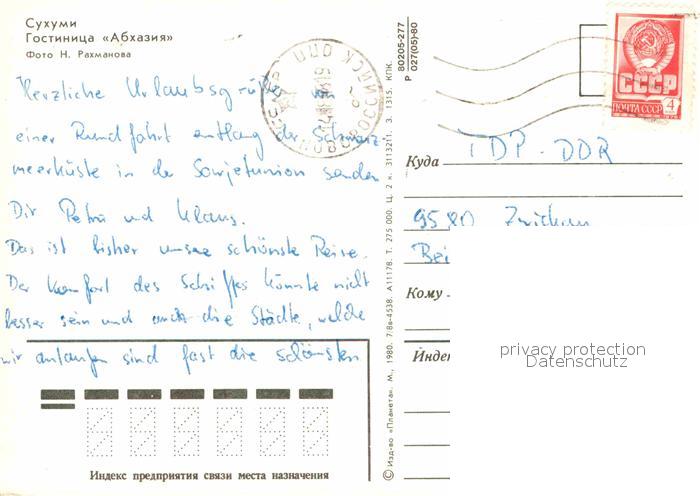 Сухуми
Гостиница «Абхазия»
Фото Н. Рахманова
Herzliche Urlaubsgrüße von
einer Rundfahrt entlang der Schwarz
meerküste in der Sowjetunion senden
Dir Petra und Klaus.
Das ist bisher unsere schönste Reise.
Der Komfort des Schiffes könnte nicht
besser sein und auch die Städte, welche
wir anlaufen sind fast die schönsten
Индекс предприятия связи места назначения
© Изд-во «Планета». М., 1980. 7/8в-4538. А11178. Т. 275 000. Ц. 2 к. 3113211. З. 1315. КПК.
80205-277
Р 027(05)-80
НОВОРОССИЙСК
СССР
ПОЧТА СССР
4
Куда
DDR
9580 Zwickau
Bei
Кому
Индек
privacy protection
Datenschutz